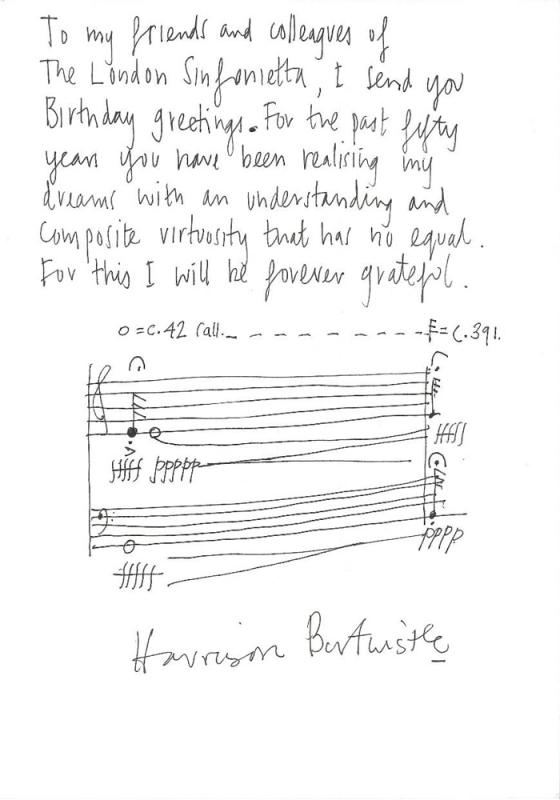 To my friends and colleagues of
The London Sinfonietta, I send you
Birthday greetings. For the past fifty
years you have been realising my
dreams with an understanding and
composite virtuosity that has no equal.
For this I will be forever grateful.
o = c. 42 rall. _ _ _ _ _ _ _ _ _ = c. 391.
fffff ppppp
fffff
pppp
fffff
Harrison Birtwistle